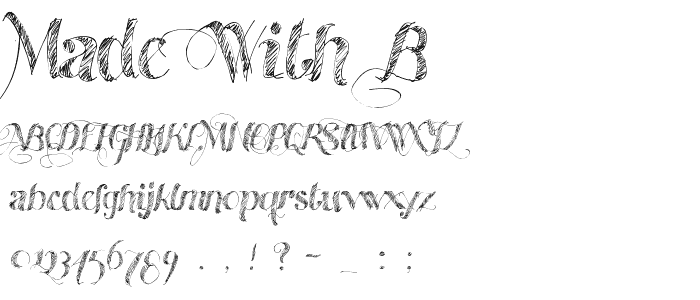 Made With B
ABCDEFGHIJKLMNOPQRSTUVWXYZ
abcdefghijklmnopqrstuvwxyz
0123456789 . , ! ? - _ : ;